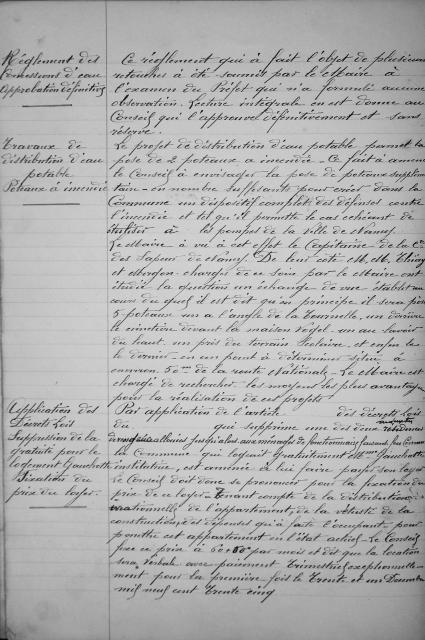 Règlement des
Concessions d'eau
Approbation définitive
Ce réoflement qui à fait l'objet de plusieurs
retouches à été soumis par le Maire à
l'examen du Préfet qui n'a formulé aucune
observation. Lecture intégrale en est donne au
Conseil qui l'approuve définitivement et sans
réserve.
Travaux de
distribution d'eau
potable
Poteaux à incendie
Le projet de distribution d'eau potable permet la
pose de 2 poteaux a incendie - Ce fait à amené
le Conseil à envisager la pose de poteaux supplémen
taire - en nombre suffisants pour créer dans la
Commune un dispositif complet des défenses contre
l'incendie et tel qu'il permette le cas echéant de
utiliser à les pompes de la ville de Nancy.
Le Maire à vu à cet effet le Capitaine de la Cie
des Sapeur de Nancy. De leur côté M. M. Thiry
et chargés de ce soin par le Maire ont
étudié la question un échange de vue établit au
cours du quel il est dit qu'en principe il sera posé
5 poteaux un a l'angle de la Tournelle, un derrière
le cimetière devant la maison un au lavoir
du haut, un près du terrain Scolaire et enfin le
le dernier en un point à déterminer situé à
environ 50m de la route Nationale - Le Maire est
chargé de rechercher les moyens les plus avantageux
pour la réalisation de ces projets
Application des
Décrets Lois
Suppression de la
gratuité pour le
logement Gauchotte
Fixation du
prix du loyer.
Par application de l'article des décrets Lois
du qui supprime une des deux
la Commune qui logeait gratuitement Mme Gauchotte
institutrice, est amenée à lui faire payer son loyer
Le Conseil doit donc se prononcer pour la fixation du
prix de ce loyer - Tenant compte de la distribution
irrationnelle de l'appartement, de la vétusté de la
construction, et des dépenses qu'à faite l'occupant pour
rendre cet appartement en l'état actuel - Le Conseil
fixe ce prix à par mois et dit que la location
sera verbale avec paiement Trimestriel exceptionnelle-
ment pour la première fois le Trente et un Décembre
mil neuf cent Trente cinq